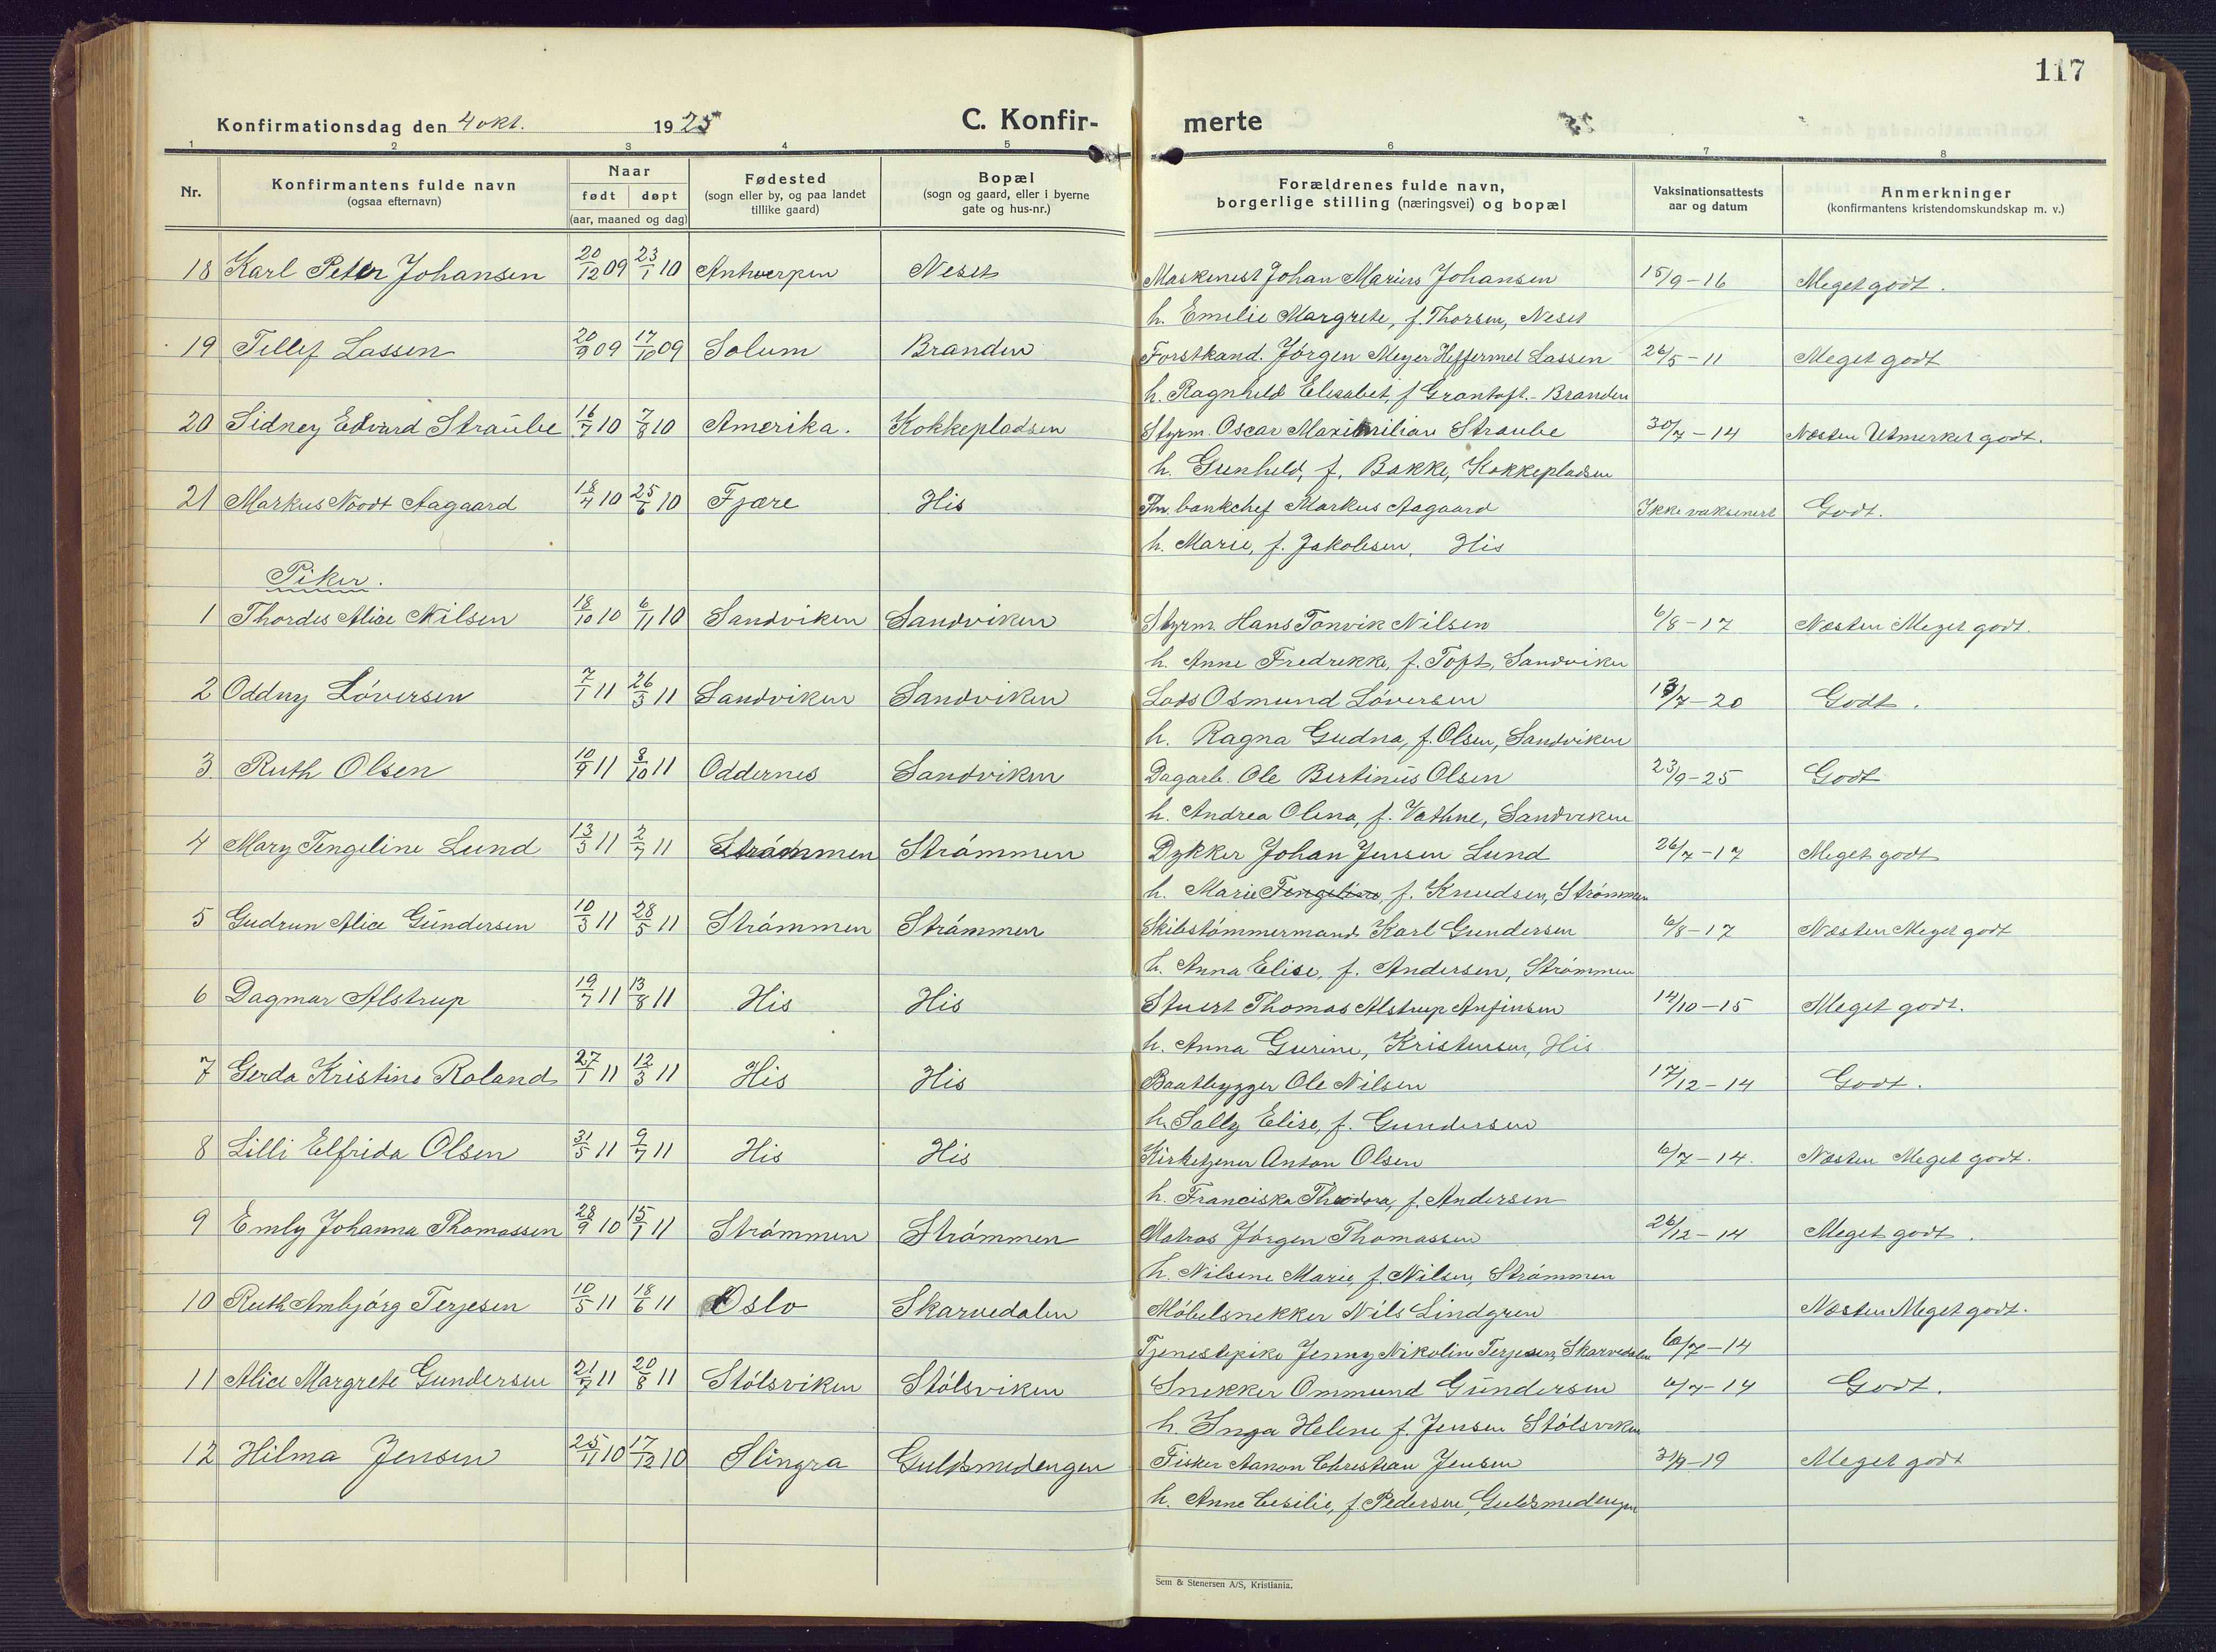 117
Konfirmationsdag den 4 okt. 1925
C. Konfir-merte
1 2 3 4 5 6 7 8
Nr.
Konfirmantens fulde navn
(ogsaa efternavn)
Naar
født døpt
(aar, maaned og dag)
Fødested
(sogn eller by, og paa landet
tillike gaard)
Bopæl
(sogn og gaard, eller i byerne
gate og hus-nr.)
Forældrenes fulde navn,
borgerlige stilling (næringsvei) og bopæl
Vaksinationsattests
aar og datum
Anmerkninger
(konfirmantens kristendomskundskap m. v.)
18 Karl Peter Johansen 20/12 09 23/1 10 Antwerpen Neset Maskinist Johan Marius Johansen 15/9-16 Meget godt.
h. Emelie Margrete, f. Thorsen, Neset
19 Tellef Lassen 20/9 09 17/10 09 Solum Branden Forstkand. Jörgen Meyer Heffermel Lassen 26/5-11 Meget godt
h. Ragnhild Elisabet, f Grontoft. - Branden
20 Sidney Edvard Straube 16/7 10 7/8 10 Amerika. Kokkepladsen Styrm. Oscar Maximilian Straube 30/7-14 Næsten Utmerket godt.
h. Gunhild, f. Bakke, Kokkepladsen
21 Markus Noodt Aagaard 18/4 10 25/6 10 Fjære His Fhv. bankchef Markus Aagaard Ikke vaksinert Godt.
h. Marie, f. Jakobsen, His
Piker.
1 Thordis Alice Nilsen 18/10 10 6/11 10 Sandviken Sandviken Styrm. Hans Tonvik Nilsen 6/8-17 Næsten Meget godt.
h. Anne Fredrikke, f. Toft, Sandviken
2 Oddny Löversen 7/1 11 26/3 11 Sandviken Sandviken Lods Osmund Löversen 13/7-20 Godt.
h. Ragna Gudna, f. Olsen, Sandviken
3 Ruth Olsen 10/9 11 8/10 11 Oddernes Sandviken Dagarb. Ole Bertinius Olsen 23/9-25 Godt
h. Andrea Olina, f. Vathne, Sandviken
4 Mary Tengeline Lund 13/3 11 2/7 11 Strömmen Strömmen Dykker Johan Jensen Lund 26/7-17 Meget godt
h. Marie Tengeline, f. Knudsen, Strömmen
5 Gudrun Alice Gundersen 10/3 11 28/5 11 Strömmen Strömmen Skibstömmermand Karl Gundersen 6/8-17 Næsten Meget godt
h. Anna Elise, f. Andersen, Strömmen
6 Dagmar Alstrup 19/7 11 13/8 11 His His Stuert Thomas Alstrup Anfinsen 14/10-15 Meget godt.
h. Anna Gurine, Kristensen, His
7 Gerda Kristine Roland 27/1 11 12/3 11 His His Baatbygger Ole Nilsen 17/12-14 Godt.
h. Sally Elise, f. Gundersen
8 Lilli Elfrida Olsen 31/5 11 9/7 11 His His Kirketjener Anton Olsen 6/7-14. Næsten Meget godt.
h. Franciska Theodora, f. Andersen
9 Emly Johanna Thomassen 28/9 10 15/1 11 Strömmen Strömmen Matros Jörgen Thomassen 26/12-14 Meget godt.
h. Nilsine Marie, f. Nilsen, Strömmen
10 Ruth Ambjörg Terjesen 10/5 11 18/6 11 Oslo Skarvedalen Möbelsnekker Nils Lindgren Næsten Meget godt.
Tjenestepike Jenny Nikoline Terjesen, Skarvedalen 6/7-14
11 Alice Margrete Gundersen 21/7 11 20/8 11 Stölsviken Stölsviken Snekker Ommund Gundersen 6/7-14 Godt.
h. Inga Helene f. Jensen Stölsviken
12 Hilma Jensen 25/11 10 17/12 10 Slingra Guldsmedengen Fisker Aanon Christian Jensen Meget godt
h. Anne Cesilie, f Pedersen, Guldsmedengen
Sem & Stenersen A/S, Kristiania.